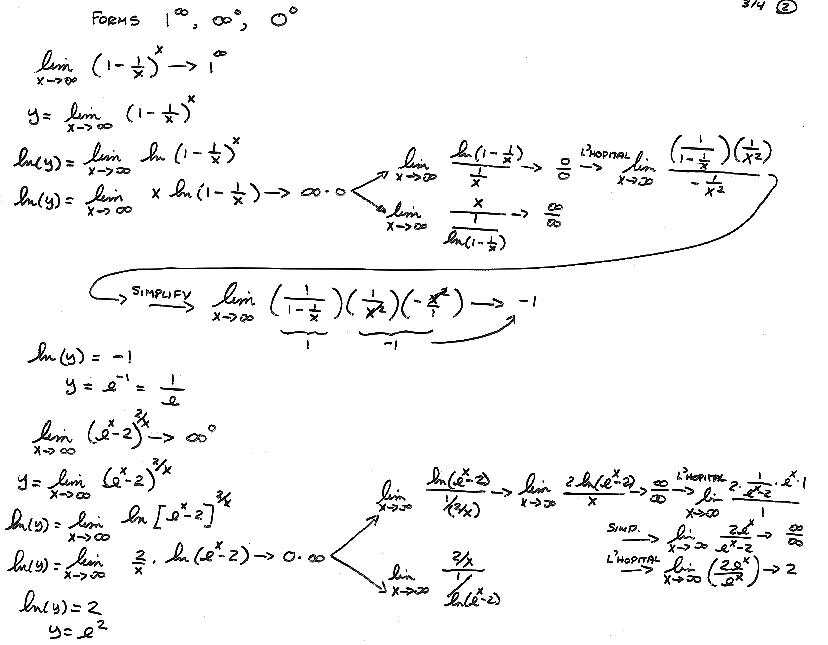 3/4 ②
FORMS 1^∞, ∞^0, 0^0
lim x→∞ (1 - 1/x)^x → 1^∞
y = lim x→∞ (1 - 1/x)^x
ln(y) = lim x→∞ ln (1 - 1/x)^x
ln(y) = lim x→∞ x ln(1 - 1/x) → ∞·0
lim x→∞ ln(1 - 1/x) / (1/x) → 0/0 → L'HOPITAL lim x→∞ (1/(1 - 1/x))(1/x²) / (-1/x²)
lim x→∞ x / (1/ln(1 - 1/x)) → ∞/∞
SIMPLIFY → lim x→∞ (1/(1 - 1/x)) (1/x²) (-x²/1) → -1
1 -1
ln(y) = -1
y = e^-1 = 1/e
lim x→∞ (e^x - 2)^(2/x) → ∞^0
y = lim x→∞ (e^x - 2)^(2/x)
ln(y) = lim x→∞ ln [e^x - 2]^(2/x)
ln(y) = lim x→∞ 2/x · ln(e^x - 2) → 0·∞
lim x→∞ ln(e^x - 2) / (1/(2/x)) → lim x→∞ 2 ln(e^x - 2) / x → ∞/∞ → L'HOPITAL lim x→∞ (2 · 1/(e^x - 2) · e^x · 1) / 1
SIMP. → lim x→∞ 2e^x / (e^x - 2) → ∞/∞
L'HOPITAL → lim x→∞ (2e^x / e^x) → 2
lim x→∞ (2/x) / (1/ln(e^x - 2))
ln(y) = 2
y = e^2